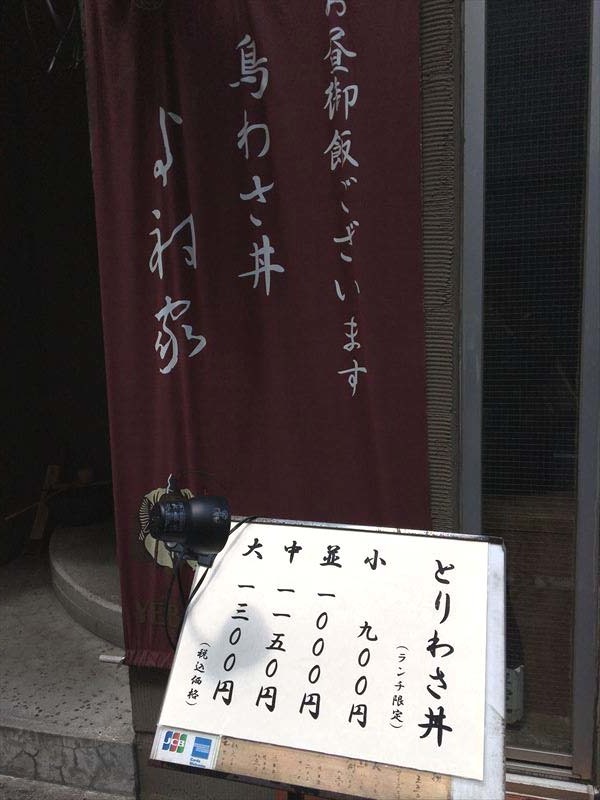 昼御飯ございます
鳥わさ丼
よし村家
とりわさ丼
（ランチ限定）
小 九〇〇円
並 一〇〇〇円
中 一一五〇円
大 一三〇〇円
（税込価格）
JCB